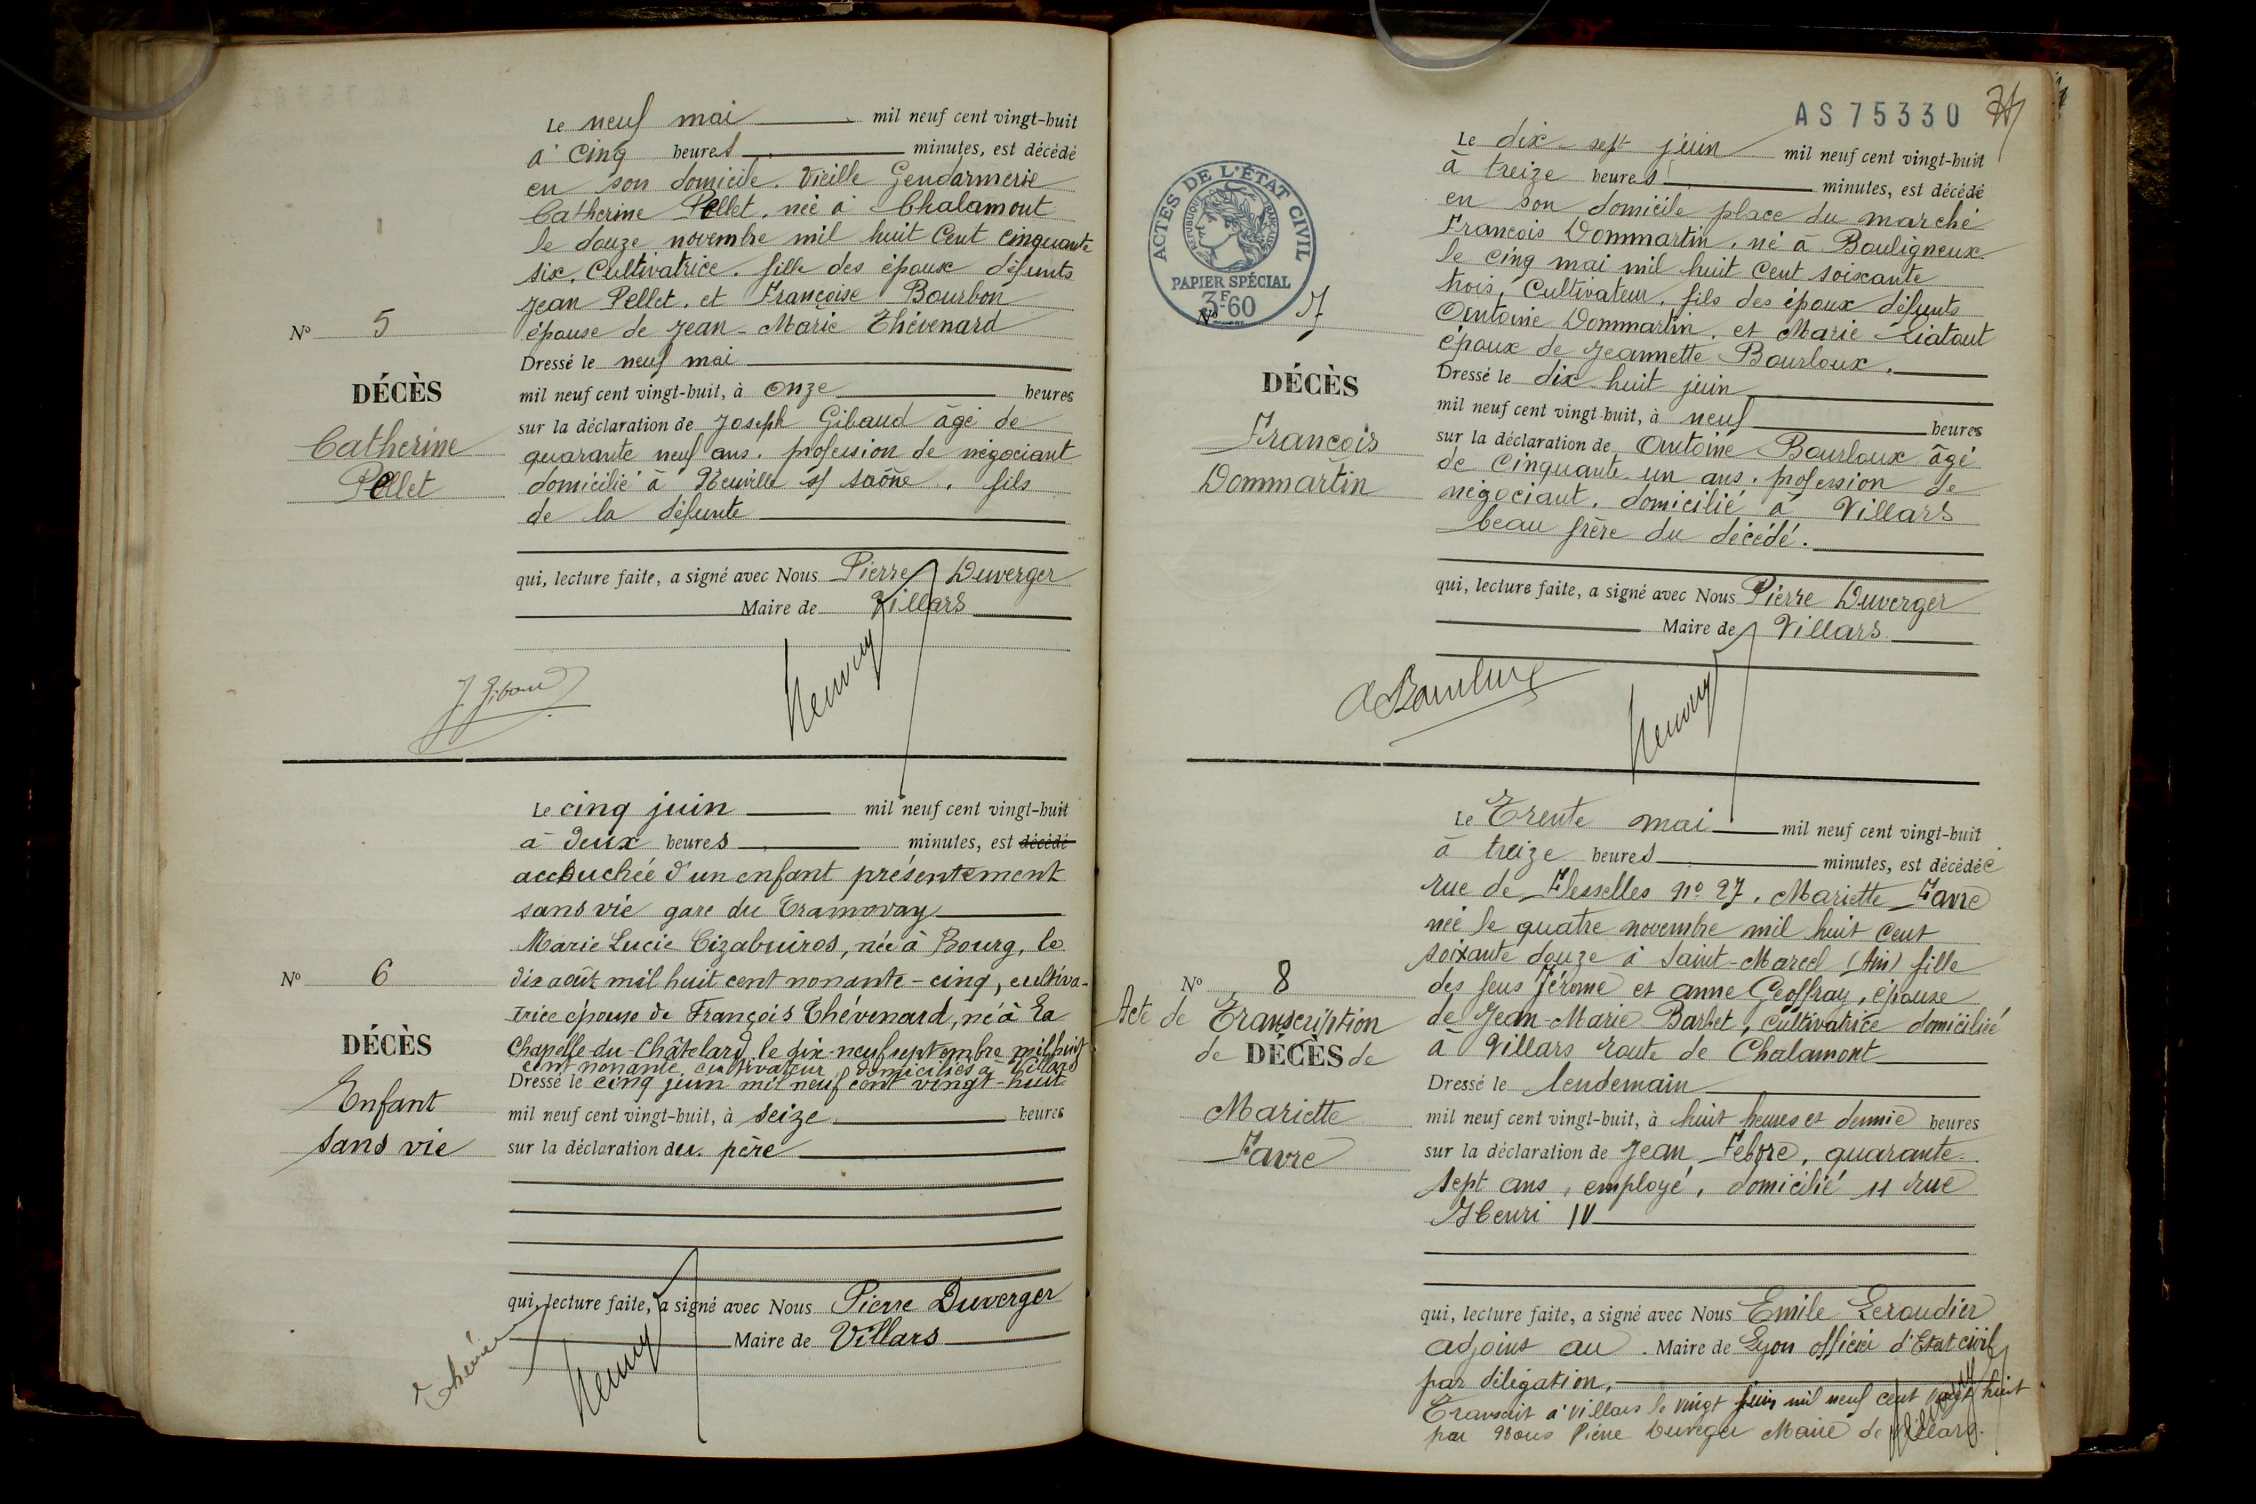 Le neuf mai mil neuf cent vingt-huit
à cinq heures minutes, est décédé
en son domicile. Vieille Gendarmerie
Catherine Pellet. née à Chalamont
le douze novembre mil huit cent cinquante
six. Cultivatrice. fille des époux défunts
Jean Pellet. et Françoise Bourbon
épouse de Jean-Marie Thévenard
Nº 5
Dressé le neuf mai
DÉCÈS
mil neuf cent vingt-huit, à onze heures
Catherine
Pellet
sur la déclaration de Joseph Gibaud âgé de
quarante neuf ans. profession de négociant
domicilié à Neuville s/ Saône. fils
de la défunte
qui, lecture faite, a signé avec Nous Pierre Duverger
Maire de Villars
J. Gibaud
Le cinq juin mil neuf cent vingt-huit
à deux heures minutes, est décédé
accouchée d'un enfant présentement
sans vie gare du Tramway
Marie Lucie Cizabuiros, née à Bourg, le
dix août mil huit cent nonante-cinq, cultiva-
trice épouse de François Thévenard, né à La
Chapelle-du-Châtelard, le dix-neuf septembre mil huit
cent nonante, cultivateur, domiciliés à Villars
Nº 6
DÉCÈS
Enfant
sans vie
Dressé le cinq juin mil neuf cent vingt-huit
mil neuf cent vingt-huit, à seize heures
sur la déclaration du père
qui, lecture faite, a signé avec Nous Pierre Duverger
Maire de Villars
AS 75330
ACTES DE L'ÉTAT CIVIL
RÉPUBLIQUE FRANÇAISE
PAPIER SPÉCIAL
3F.60
Le dix-sept juin mil neuf cent vingt-huit
à treize heures minutes, est décédé
en son domicile place du marché
François Dommartin. né à Bouligneux.
le cinq mai mil huit cent soixante
trois, Cultivateur. fils des époux défunts
Antoine Dommartin. et Marie Liataut
époux de Jeannette Bourloux.
Nº 7
DÉCÈS
François
Dommartin
Dressé le dix huit juin
mil neuf cent vingt-huit, à neuf heures
sur la déclaration de Antoine Bourloux âgé
de cinquante un ans. profession de
négociant. domicilié à Villars
beau frère du décédé.
qui, lecture faite, a signé avec Nous Pierre Duverger
Maire de Villars
A Bourloux
Le Trente mai mil neuf cent vingt-huit
à treize heures minutes, est décédée
rue de Flesselles nº 27. Mariette Favre
née le quatre novembre mil huit cent
soixante douze à Saint-Marcel (Ain) fille
des feus Jérôme et Anne Geoffray, épouse
de Jean-Marie Barbet, cultivatrice domiciliée
à Villars route de Chalamont
Nº 8
Acte de Transcription
de DÉCÈS de
Mariette
Favre
Dressé le lendemain
mil neuf cent vingt-huit, à huit heures et demie heures
sur la déclaration de Jean Febvre, quarante-
sept ans, employé, domicilié 11 rue
Henri IV
qui, lecture faite, a signé avec Nous Emile Leroudier
adjoint au Maire de Lyon officier d'Etat civil
par délégation.
Transcrit à Villars le vingt juin mil neuf cent vingt huit
par Nous Pierre Duverger Maire de Villars.